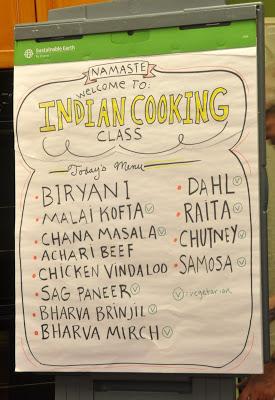 Sustainable Earth
NAMASTE
WELCOME TO:
INDIAN COOKING
CLASS
Today's Menu
• BIRYANI
• MALAI KOFTA Ⓥ
• CHANA MASALA Ⓥ
• ACHARI BEEF
• CHICKEN VINDALOO
• SAG PANEER Ⓥ
• BHARVA BRINJIL Ⓥ
• BHARVA MIRCH Ⓥ
• DAHL Ⓥ
• RAITA Ⓥ
• CHUTNEY Ⓥ
• SAMOSA Ⓥ
Ⓥ = vegetarian